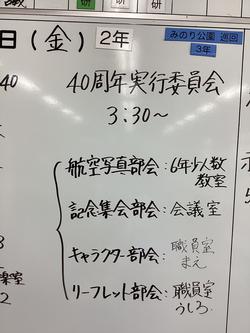 研 研
日(金) 2年 みのり公園 巡回
3年
40
40周年実行委員会
3:30〜
航空写真部会:6年少人数
教室
記念集会部会:会議室
キャラクター部会:職員室
まえ
リーフレット部会:職員室
うしろ